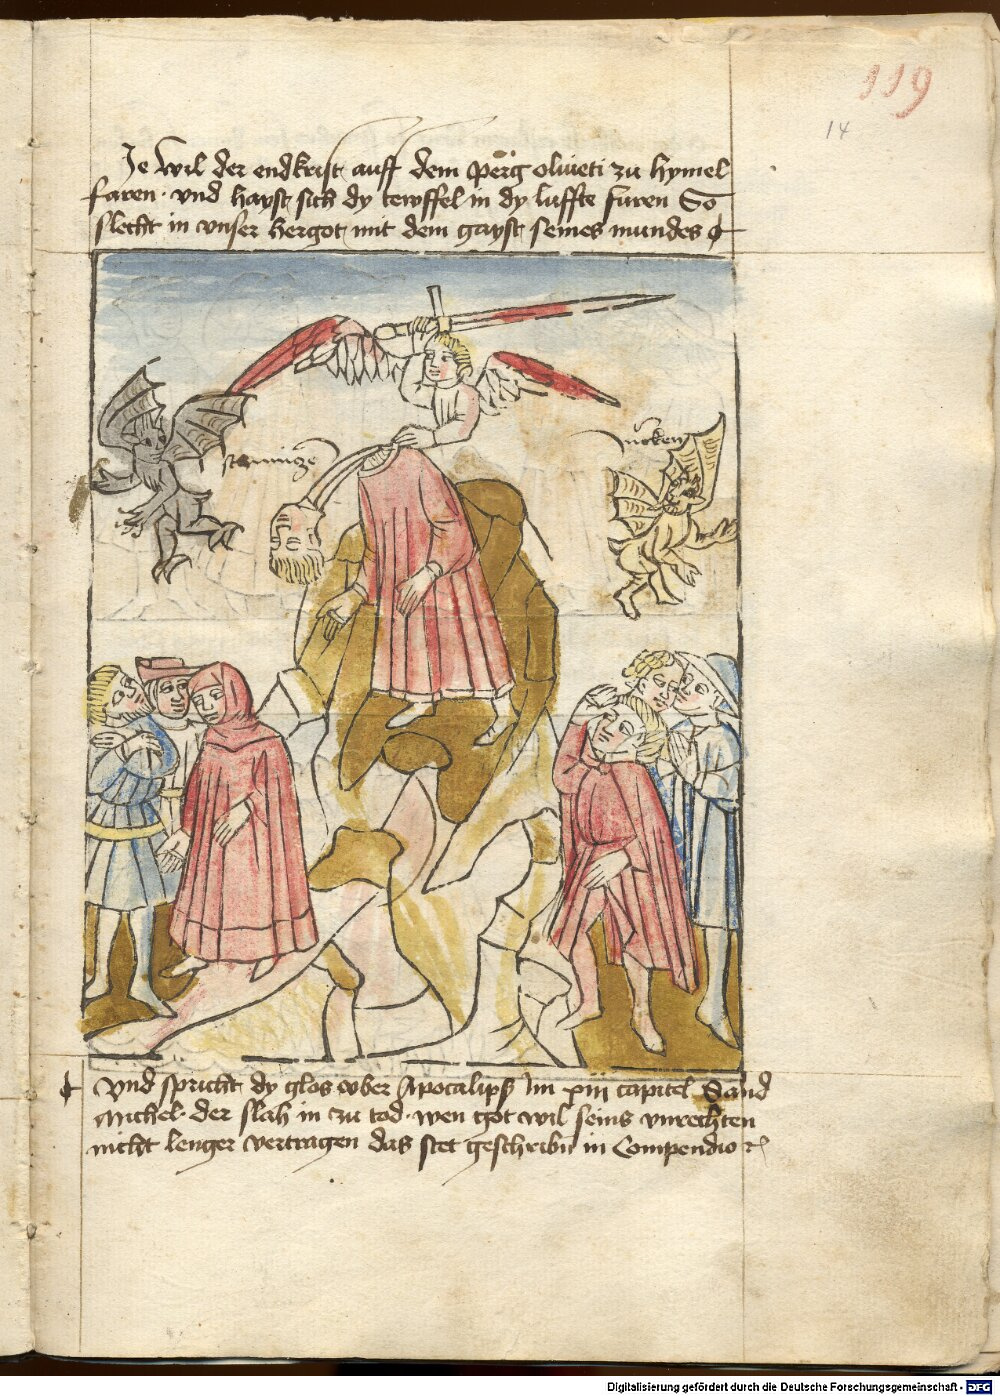 119
14
Je wil der endkrist auff dem perg oliueti zu hymel
faren · vnd hayst sich dy tewffel in dy luffte furen So
slecht in vnser hergot mit dem gayst seines mundes
vncken
Vnd spricht dy glos vber Apocalipß Im xiij capitel Sand
Michel · der slah in zu tod · wen got wil seins vnrechten
nicht lenger vertragen das stet geschribn in Compendio
Digitalisierung gefördert durch die Deutsche Forschungsgemeinschaft - DFG